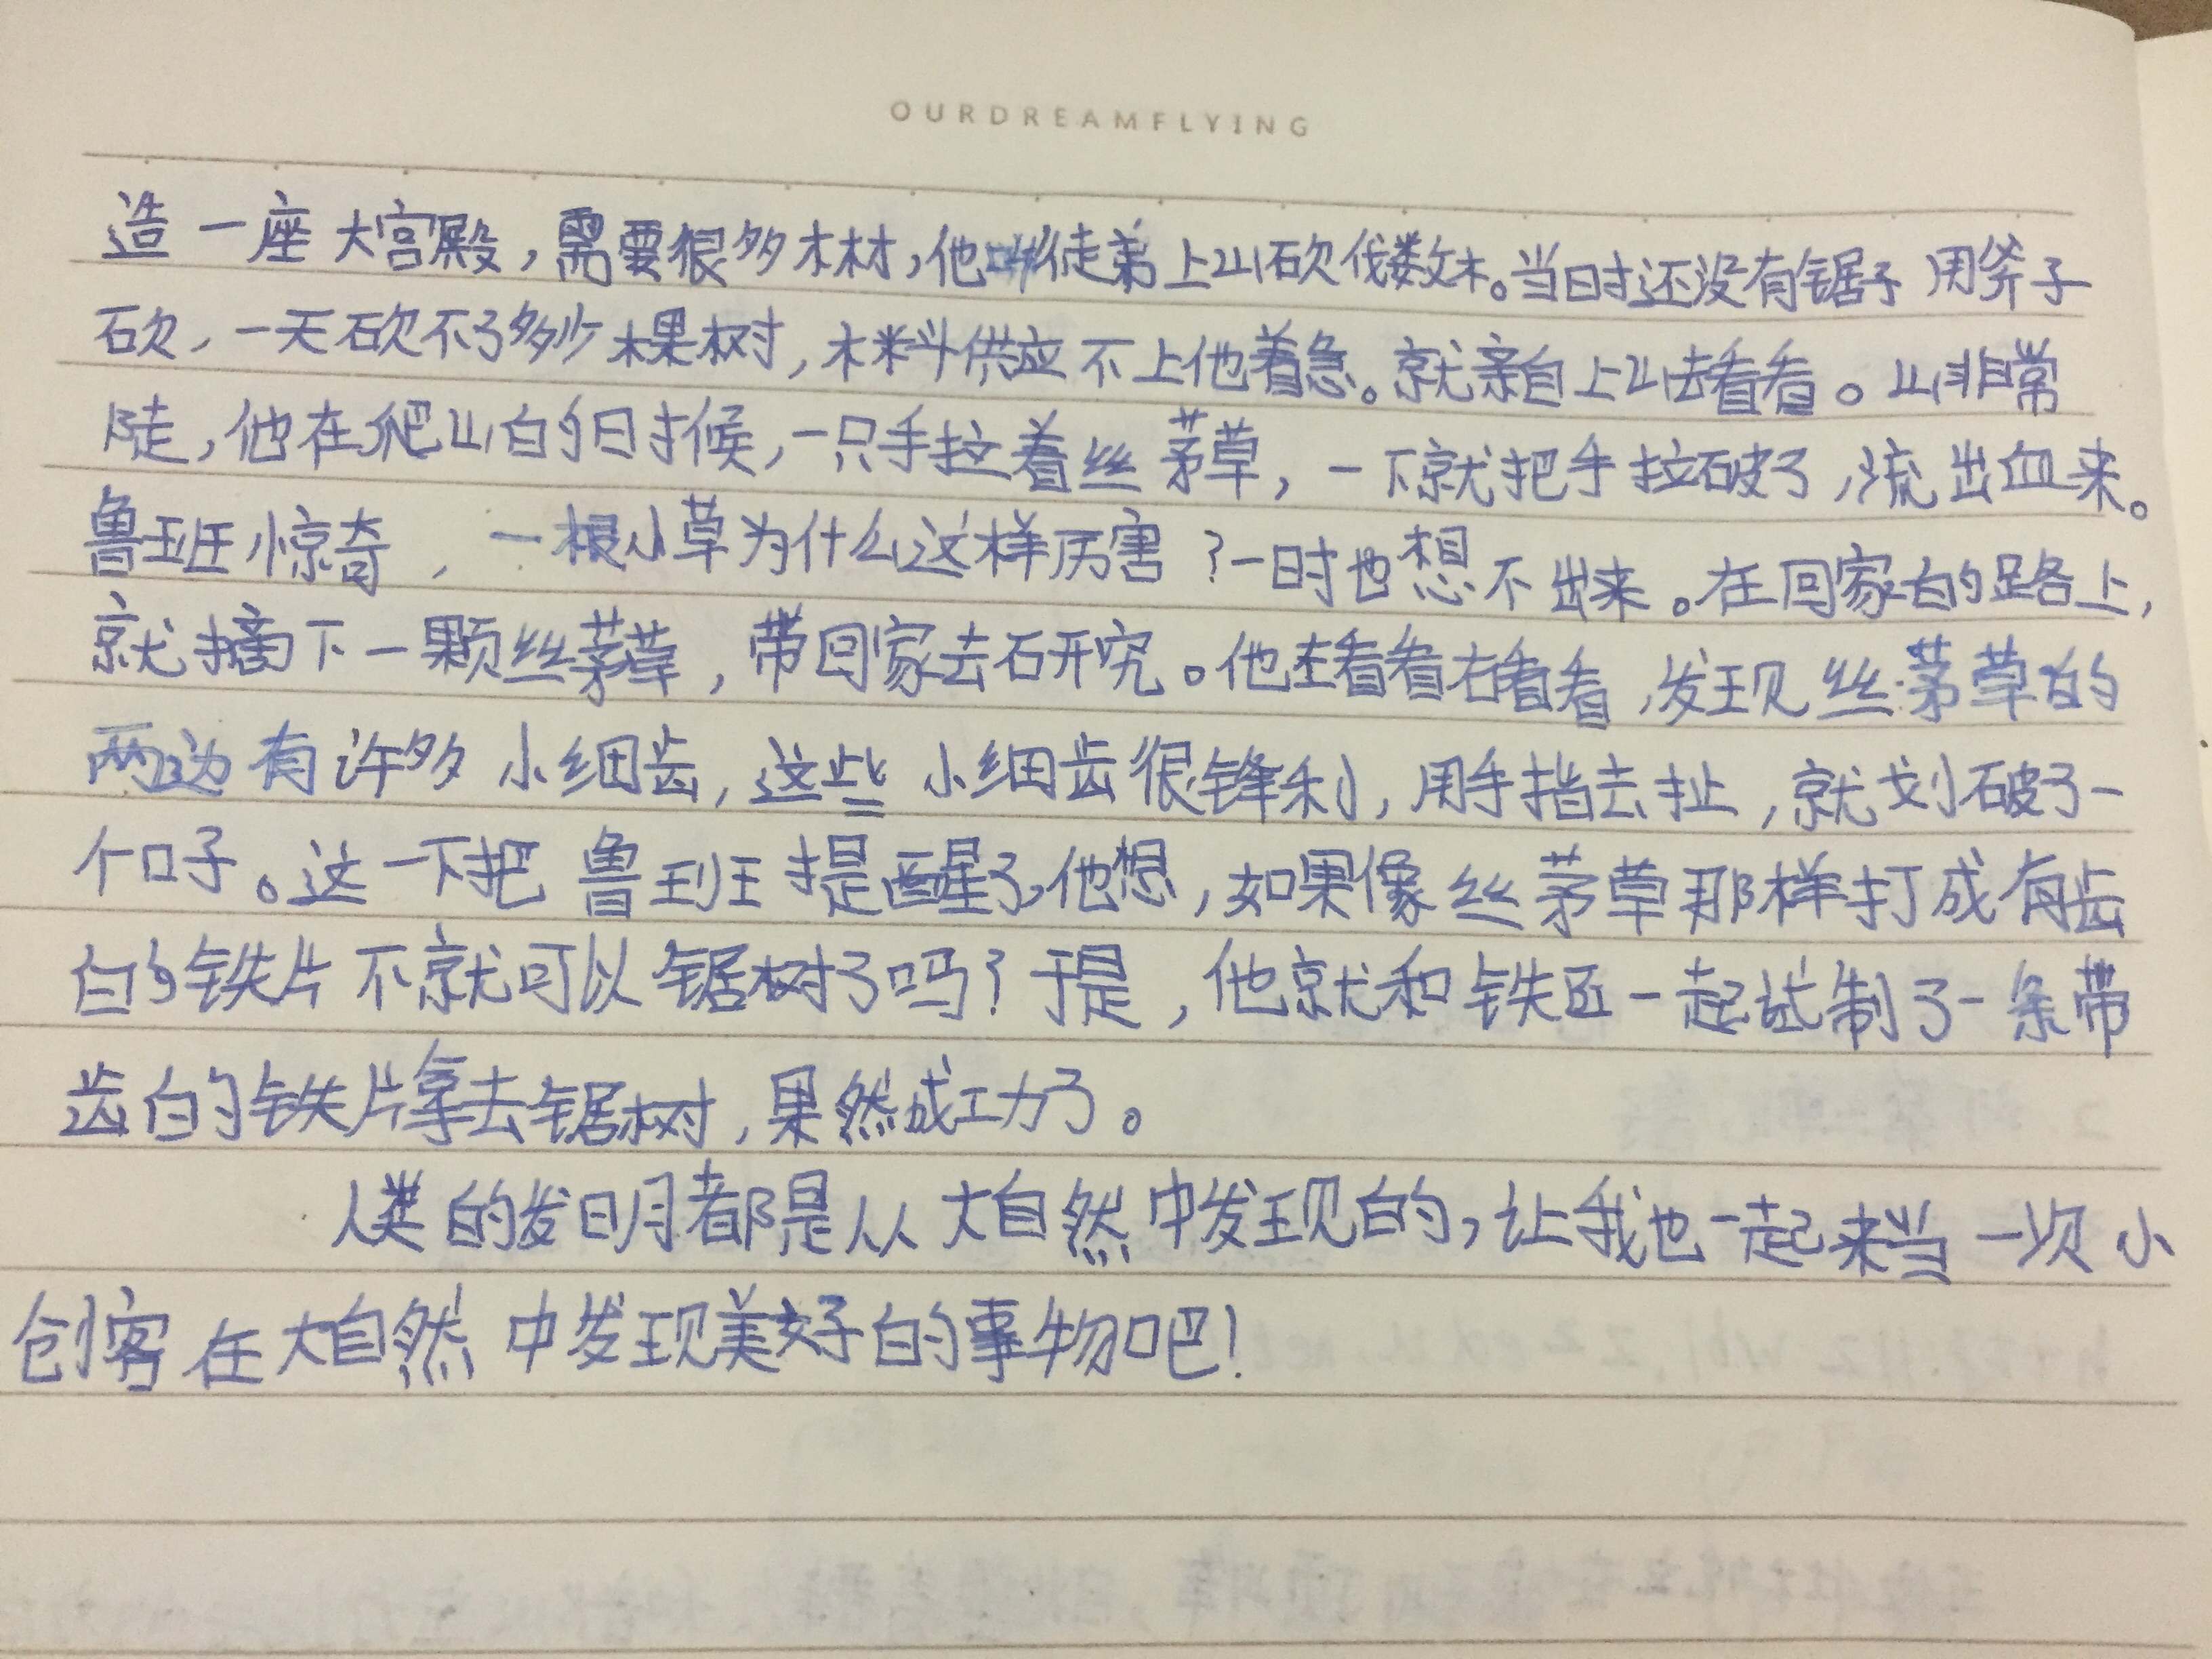 OURDREAMFLYING
造一座大宫殿,需要很多木材,他叫徒弟上山砍伐数木。当时还没有锯子用斧子
砍,一天砍不了多少棵树,木料供应不上他着急。就亲自上山去看看。山非常
陡,他在爬山的时候,一只手拉着丝茅草,一下就把手拉破了,流出血来。
鲁班惊奇,一根小草为什么这样厉害?一时也想不出来。在回家的路上,
就摘下一颗丝茅草,带回家去研究。他左看看右看看,发现丝茅草的
两边有许多小细齿,这些小细齿很锋利,用手指去扯,就划破了一
个口子。这一下把鲁班提醒了,他想,如果像丝茅草那样打成有齿
的铁片不就可以锯树了吗?于是,他就和铁匠一起试制了一条带
齿的铁片拿去锯树,果然成功了。
人类的发明都是从大自然中发现的,让我也一起来当一次小
创客在大自然中发现美好的事物吧!